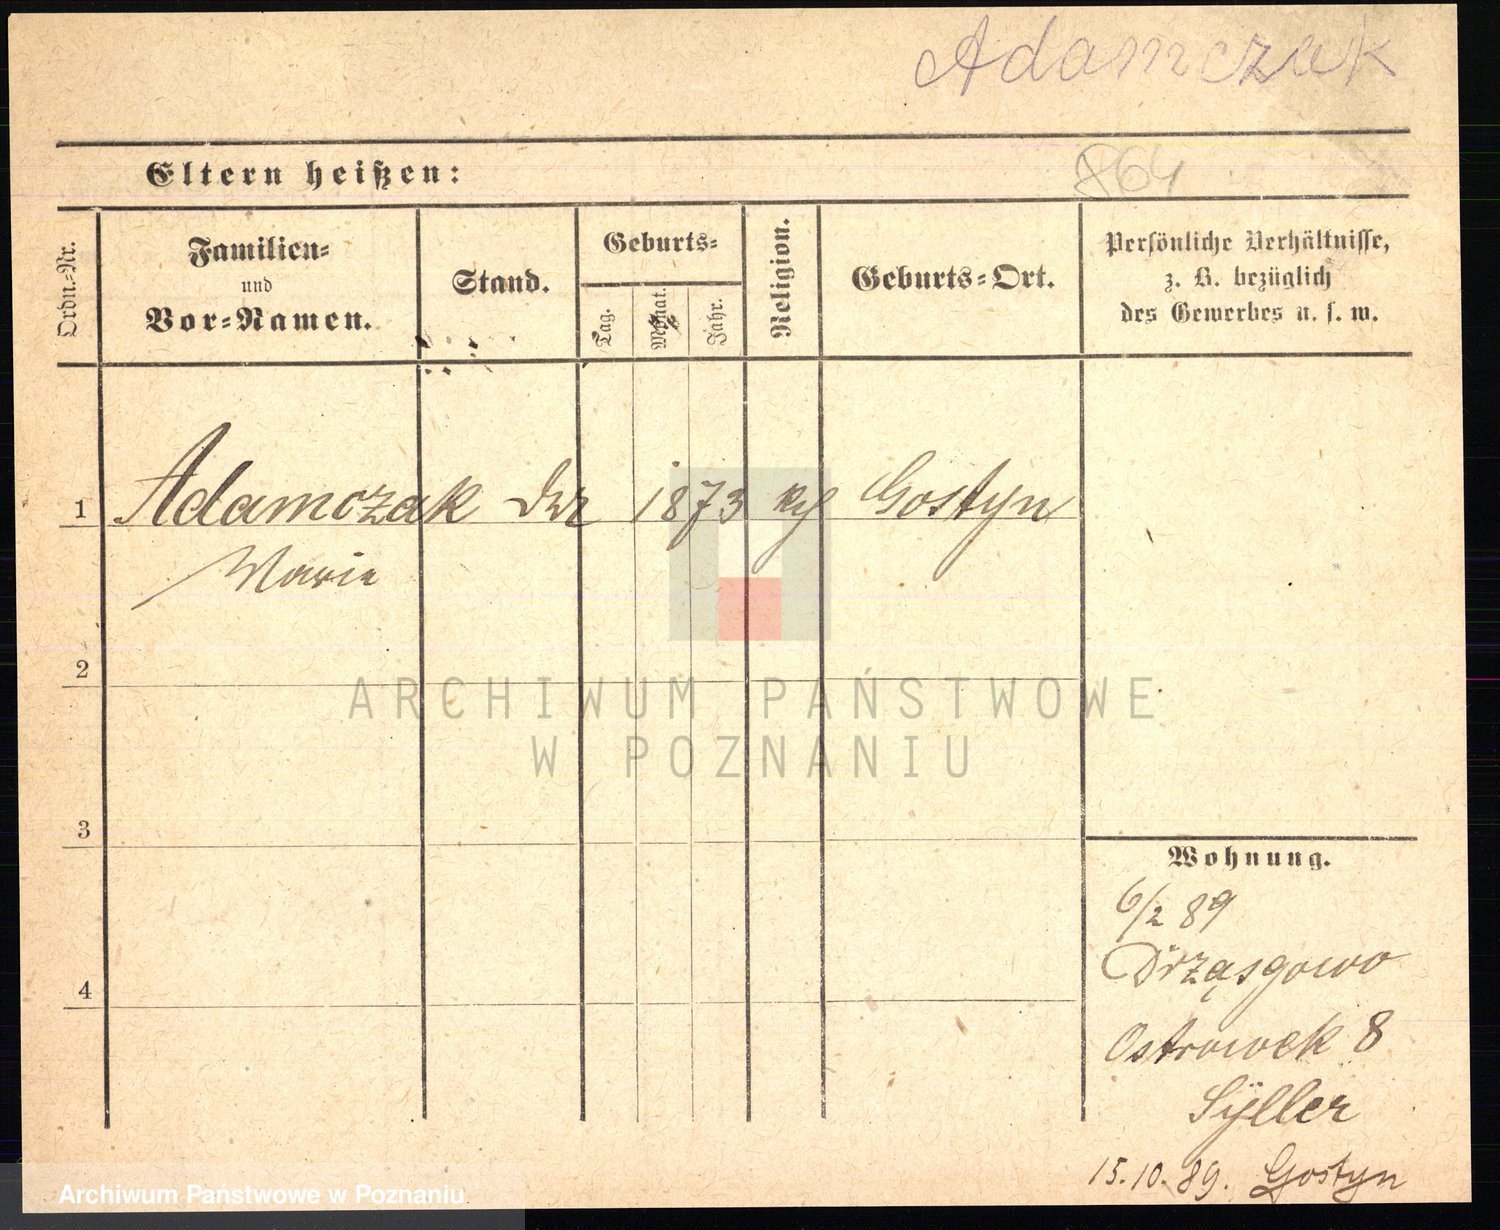 Adamczak
Eltern heißen:
864
Ordn.-Nr.
Familien-
und
Vor-Namen.
Stand.
Geburts-
Tag.
Monat.
Jahr.
Religion.
Geburts-Ort.
Persönliche Verhältnisse,
z. B. bezüglich
des Gewerbes u. s. w.
1 Adamczak 1873 Gostyn
Marie
2
3
4
Wohnung.
6/2 89
Drząsgowo
Ostrowek 8
Syller
15.10.89. Gostyn
ARCHIWUM PAŃSTWOWE
W POZNANIU
Archiwum Państwowe w Poznaniu